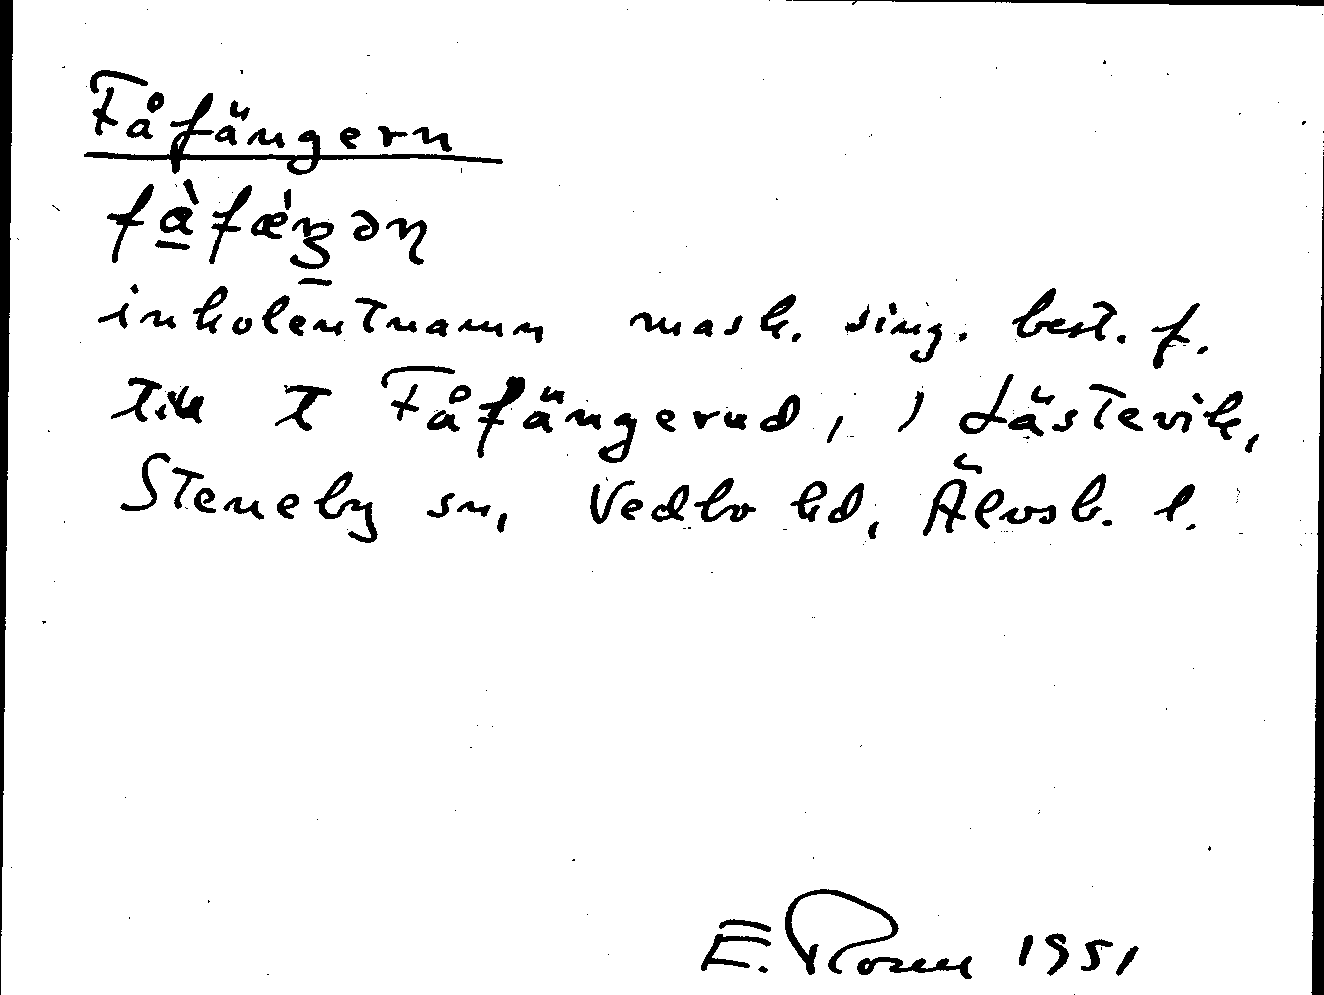 Fåfängern
fàfǽŋən
inkolentnamn mask. sing. best. f.
till t Fåfängerud, i Låstevik,
Steneby sn, Vedbo hd, Älvsb. l.
E. Rosell 1951